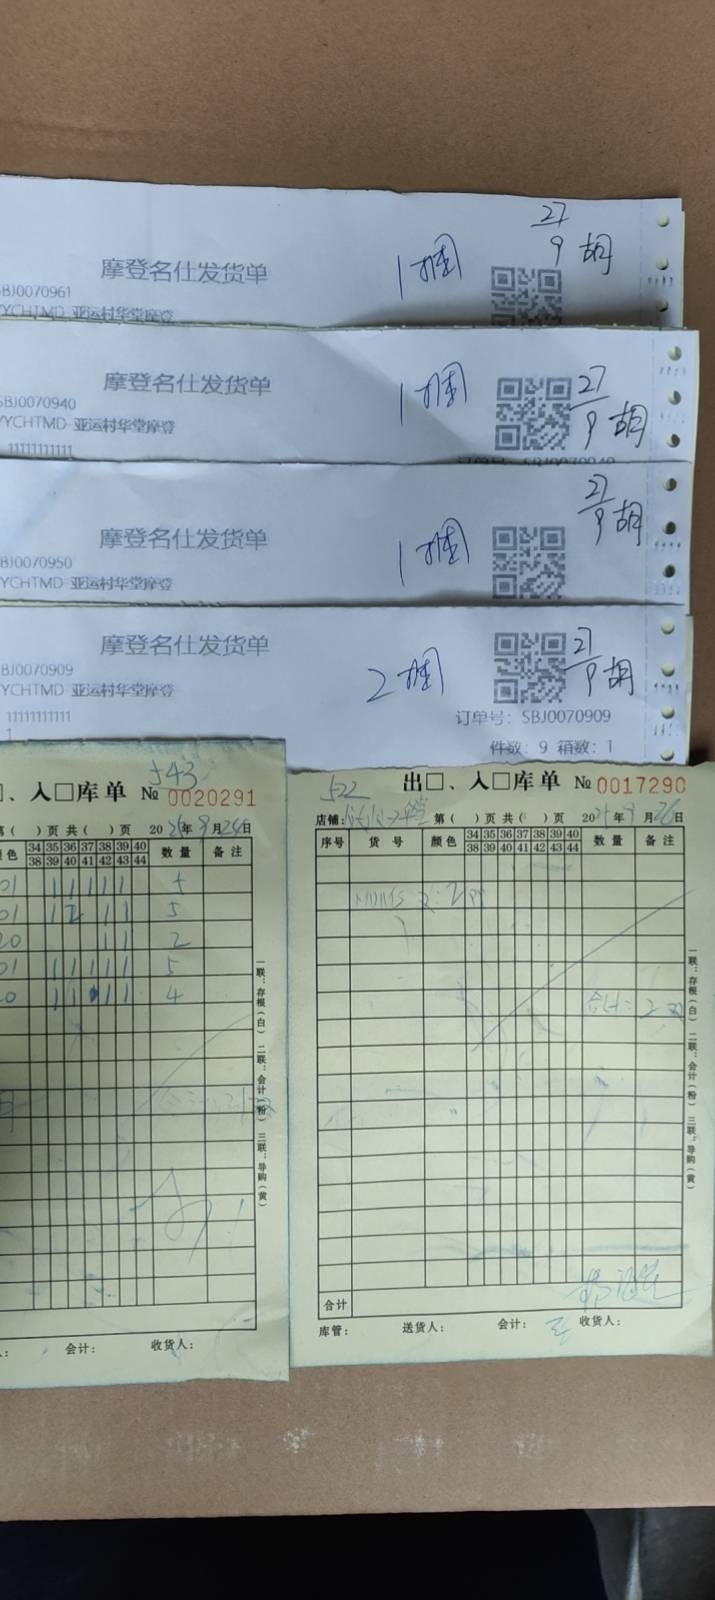 27
9 胡
1捆
摩登名仕发货单
SBJ0070961
YYCHTMD 亚运村华堂摩登
1捆
27
9 胡
摩登名仕发货单
SBJ0070940
YYCHTMD 亚运村华堂摩登
11111111111
订单号: SBJ0070940
27
9 胡
1捆
摩登名仕发货单
BJ0070950
YYCHTMD 亚运村华堂摩登
27
9 胡
2捆
摩登名仕发货单
BJ0070909
YCHTMD 亚运村华堂摩登
11111111111
1
订单号: SBJ0070909
件数: 9 箱数: 1
543
、入□库单 № 0020291
第( )页 共( )页 20 年9月26日
色 34 35 36 37 38 39 40 数量 备注
38 39 40 41 42 43 44
01 1 1 1 1 1 5
01 1 2 1 1 5
20 1 1 2
01 1 1 1 1 1 5
0 1 1 1 1 4
一联:存根(白) 二联:会计(粉) 三联:导购(黄)
会计: 收货人:
522
出□、入□库单 № 0017290
店铺: 第( )页 共( )页 20 年9月26日
序号 货号 颜色 34 35 36 37 38 39 40 数量 备注
38 39 40 41 42 43 44
合计: 2双
一联:存根(白) 二联:会计(粉) 三联:导购(黄)
合计
库管: 送货人: 会计: 收货人: